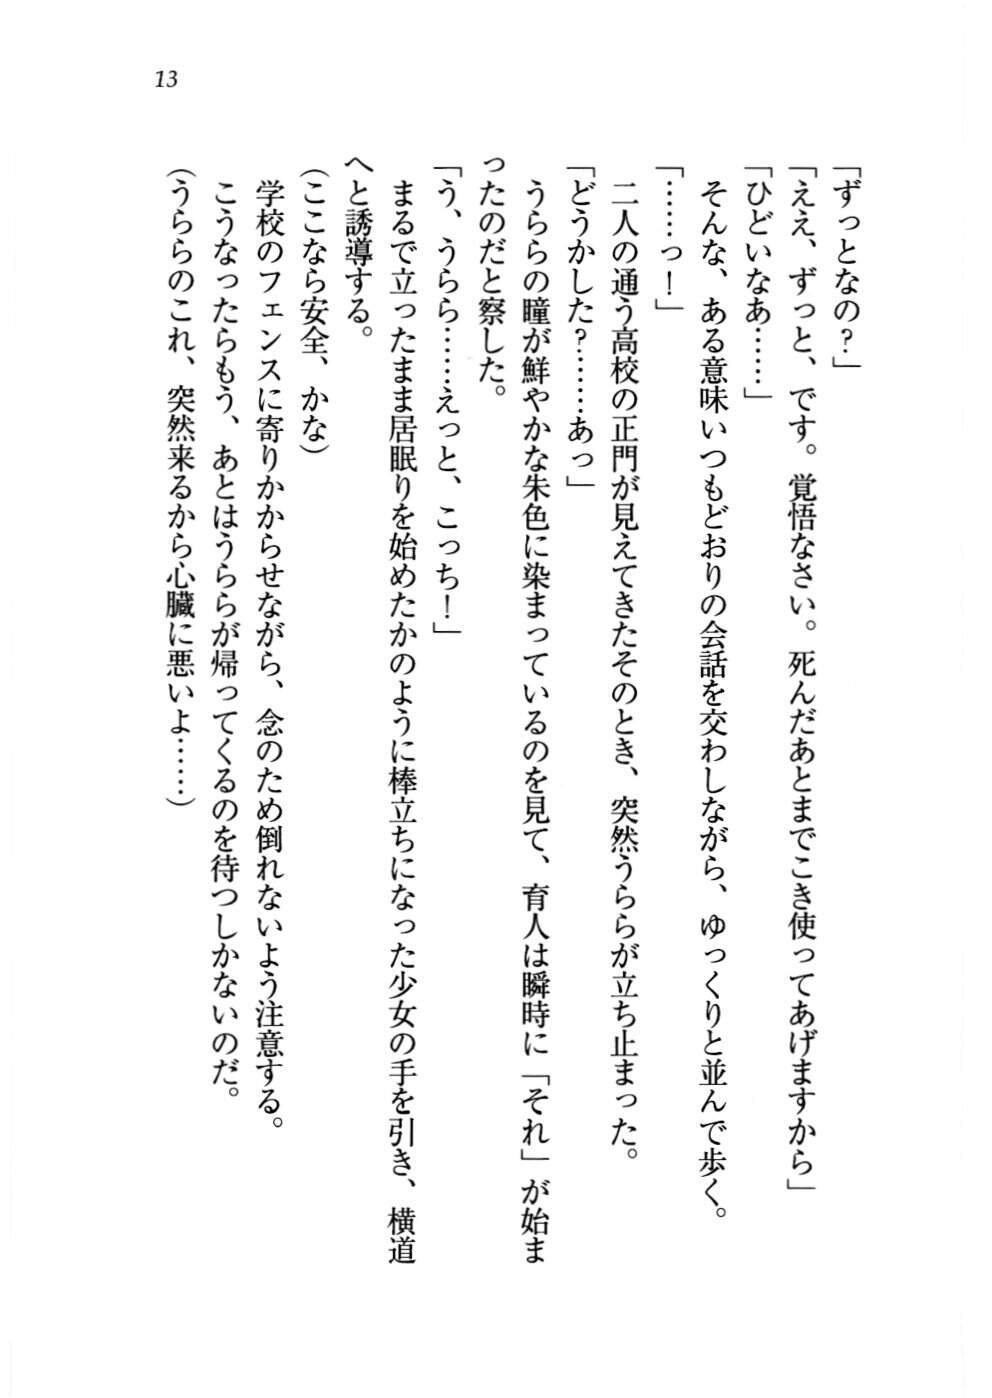 13
「ずっとなの？」
「ええ、ずっと、です。覚悟なさい。死んだあとまでこき使ってあげますから」
「ひどいなあ……」
　そんな、ある意味いつもどおりの会話を交わしながら、ゆっくりと並んで歩く。
「……っ！」
　二人の通う高校の正門が見えてきたそのとき、突然うららが立ち止まった。
「どうかした？……あっ」
　うららの瞳が鮮やかな朱色に染まっているのを見て、育人は瞬時に「それ」が始ま
ったのだと察した。
「う、うらら……えっと、こっち！」
　まるで立ったまま居眠りを始めたかのように棒立ちになった少女の手を引き、横道
へと誘導する。
（ここなら安全、かな）
　学校のフェンスに寄りかからせながら、念のため倒れないよう注意する。
　こうなったらもう、あとはうららが帰ってくるのを待つしかないのだ。
（うららのこれ、突然来るから心臓に悪いよ……）